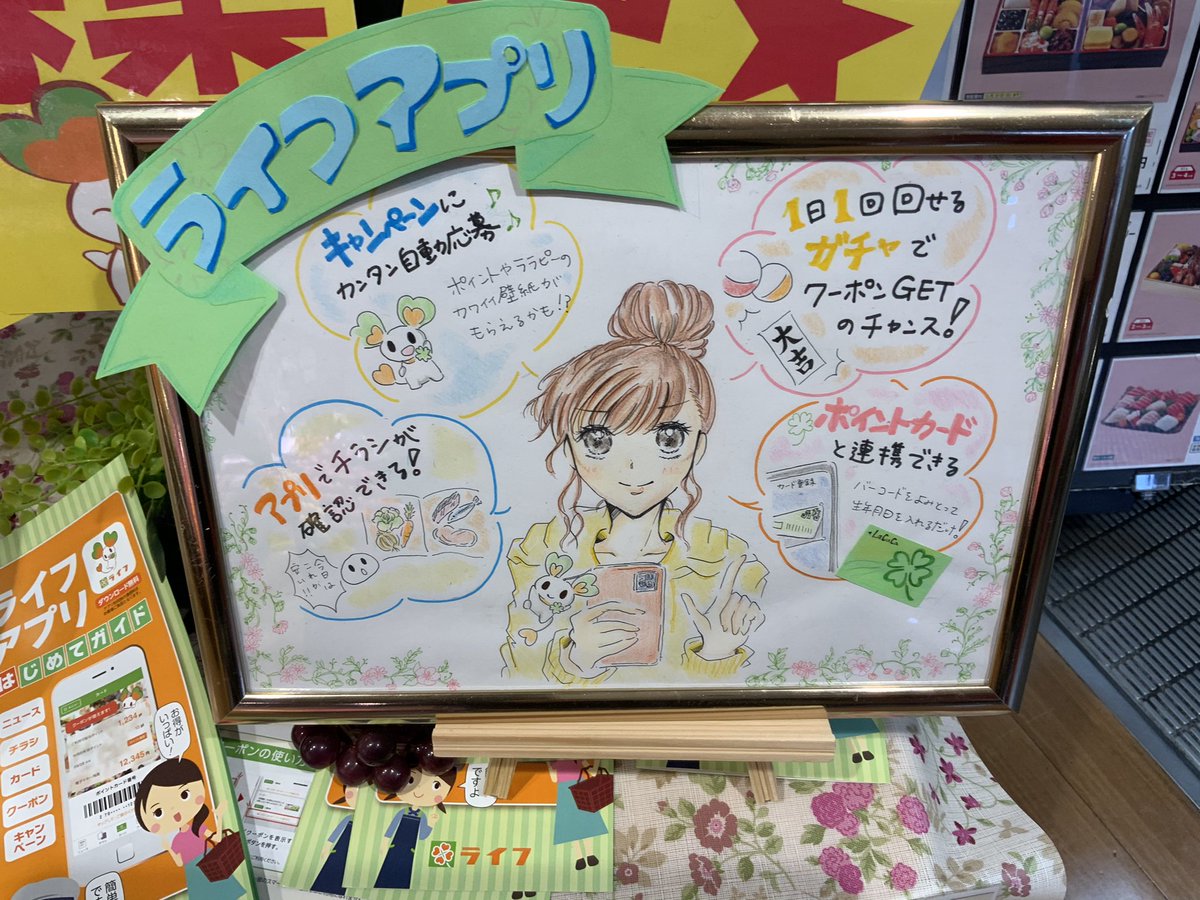 ライフアプリ
キャンペーンに
カンタン自動応募♪♪
ポイントやララピーの
カワイイ壁紙が
もらえるかも!?
1日1回回せる
ガチャで
クーポンGET
のチャンス!
大吉
アプリでチラシが
確認できる!
今日は
これが
安い
ポイントカード
と連携できる
カード登録
バーコードをよみとって
生年月日を入れるだけっ!
LaCuCa
ライフ
ダウンロード無料
ライフ
アプリ
はじめてガイド
ニュース
チラシ
カード
クーポン
キャン
ペーン
1,234
12,345
ポイントカード番号
お得が
いっぱい!
簡単
ーポンの使い方
クーポンを表示す
ボタンを押す。
ですよ
ライフ
3~4
2~3